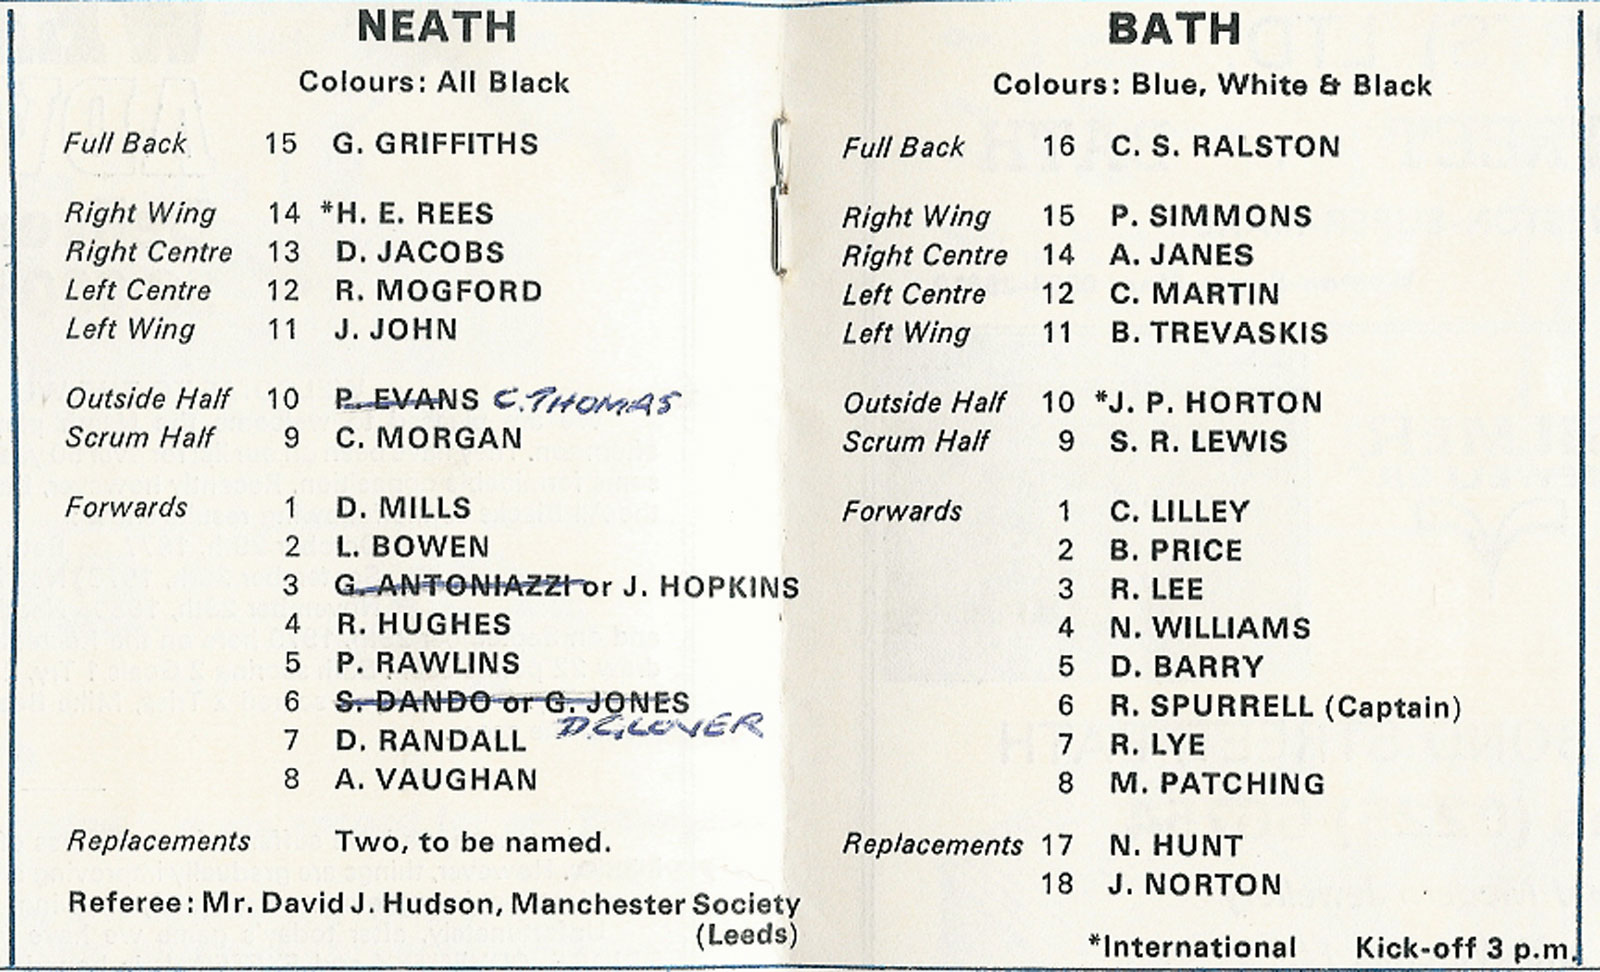 NEATH
Colours: All Black
Full Back 15 G. GRIFFITHS
Right Wing 14 *H. E. REES
Right Centre 13 D. JACOBS
Left Centre 12 R. MOGFORD
Left Wing 11 J. JOHN
Outside Half 10 P. EVANS C. THOMAS
Scrum Half 9 C. MORGAN
Forwards 1 D. MILLS
2 L. BOWEN
3 G. ANTONIAZZI or J. HOPKINS
4 R. HUGHES
5 P. RAWLINS
6 S. DANDO or G. JONES
D. GLOVER
7 D. RANDALL
8 A. VAUGHAN
Replacements Two, to be named.
Referee: Mr. David J. Hudson, Manchester Society
(Leeds)
BATH
Colours: Blue, White & Black
Full Back 16 C. S. RALSTON
Right Wing 15 P. SIMMONS
Right Centre 14 A. JANES
Left Centre 12 C. MARTIN
Left Wing 11 B. TREVASKIS
Outside Half 10 *J. P. HORTON
Scrum Half 9 S. R. LEWIS
Forwards 1 C. LILLEY
2 B. PRICE
3 R. LEE
4 N. WILLIAMS
5 D. BARRY
6 R. SPURRELL (Captain)
7 R. LYE
8 M. PATCHING
Replacements 17 N. HUNT
18 J. NORTON
*International Kick-off 3 p.m.